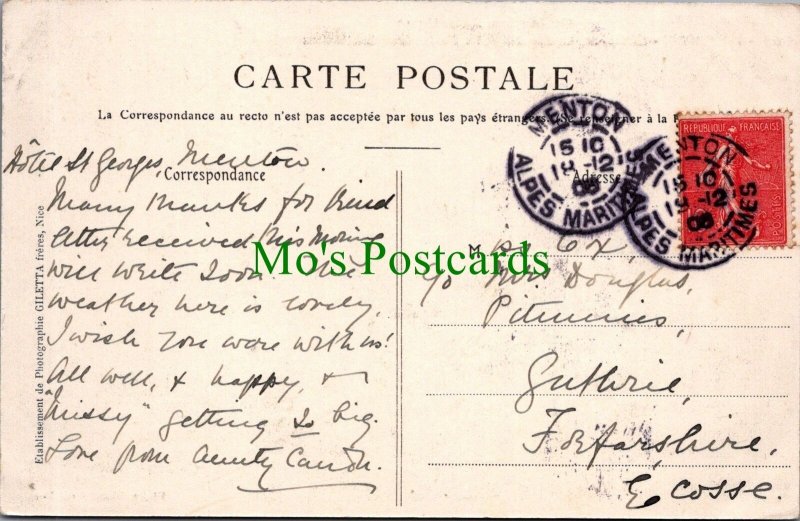 CARTE POSTALE
La Correspondance au recto n'est pas acceptée par tous les pays étrangers (Se renseigner à la
MENTON
15 10
19 -12
08
ALPES MARITIMES
MENTON
15 10
19 -12
08
ALPES MARITIMES
REPUBLIQUE FRANÇAISE
POSTES
Hôtel St Georges, Menton.
Correspondance
Many thanks for kind
letter received this morning
will write soon. The
weather here is lovely,
I wish you were with us!
All well, & happy, &
"Missy" getting so big.
Love from Aunty
Etablissement de Photographie GILETTA frères, Nice
Adresse
M
c/o Mrs Douglas,
Pitmuies,
Guthrie,
Forfarshire,
Ecosse.
Mo's Postcards